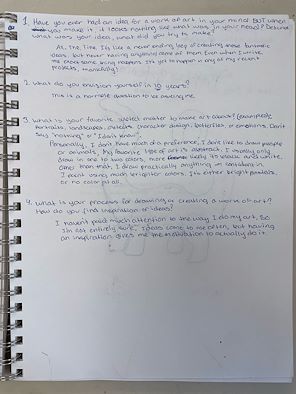 1. Have you ever had an idea for a work of art in your mind but when
you make it it looks nothing like what was in your head? Describe
what was your idea, what did you try to make?
All. The. Time. It's like a never ending loop of creating these fantastic
ideas, but never having anything come of them. Even when I write
the exact same thing happens. It's yet to happen in any of my recent
projects, thankfully!
2. What do you envision yourself in 10 years?
This is a horrible question to be asking me.
3. What is your favorite subject matter to make art about? (examples:
portraits, landscapes, objects, character design, batteries, or emotions. Don't
say "nothing" or "I don't know".
Personally, I don't have much of a preference, I don't like to draw people
or animals. My favorite type of art is abstract. I usually only
draw in one to two colors, more likely to be black and white.
Other than that, I draw practically anything on
I paint using much brighter colors. It's either bright pastels,
or no color at all.
4. What is your process for drawing or creating a work of art?
How do you find inspiration or ideas?
I haven't paid much attention to the way I do my art, so
I'm not entirely sure. Ideas come to me often, but having
an inspiration gives me the motivation to actually do it.